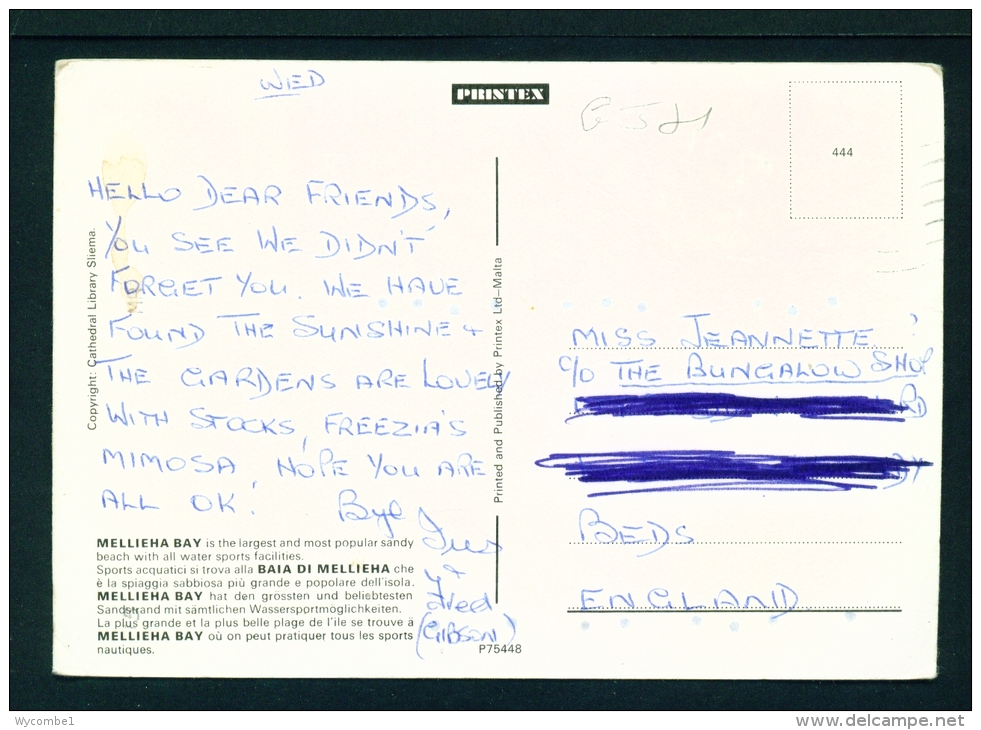 WED
PRINTEX
444
HELLO DEAR FRIENDS,
YOU SEE WE DIDN'T
FORGET YOU. WE HAVE
FOUND THE SUNSHINE +
THE GARDENS ARE LOVELY
WITH STOCKS, FREEZIA'S
MIMOSA. HOPE YOU ARE
ALL OK! Bye
+
Fred
(GIBSON)
Copyright: Cathedral Library Sliema.
MELLIEHA BAY is the largest and most popular sandy
beach with all water sports facilities.
Sports acquatici si trova alla BAIA DI MELLIEHA che
è la spiaggia sabbiosa più grande e popolare dell'isola.
MELLIEHA BAY hat den grössten und beliebtesten
Sandstrand mit sämtlichen Wassersportmöglichkeiten.
La plus grande et la plus belle plage de l'ile se trouve à
MELLIEHA BAY où on peut pratiquer tous les sports
nautiques.
P75448
Printed and Published by Printex Ltd–Malta
MISS JEANNETTE
C/O THE BUNGALOW SHOP
RD
BEDS
ENGLAND
Wycombe1
www.delcampe.net